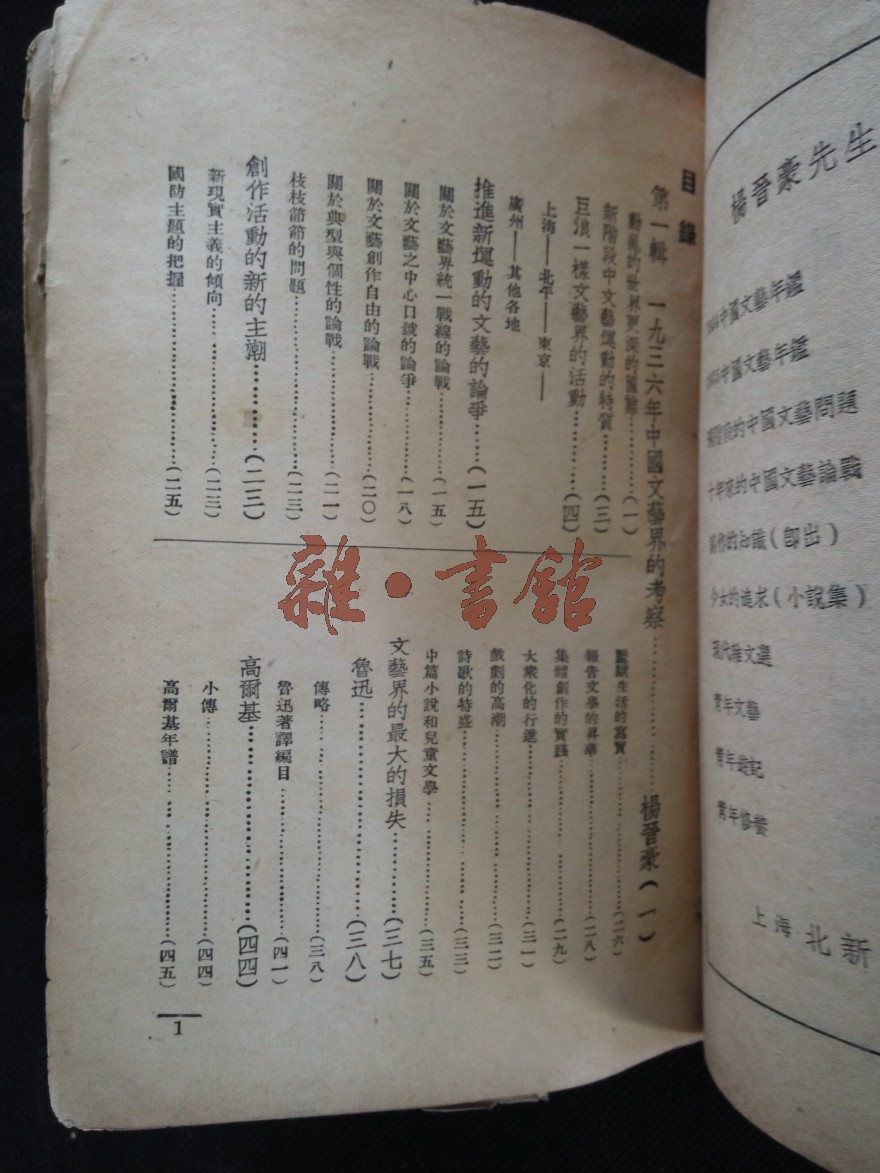 楊晉豪先生
中國文藝年鑑
中國文藝年鑑
階段的中國文藝問題
十年來的中國文藝論戰
寫作的知識(卽出)
少女的追求(小說集)
現代雜文選
青年文藝
青年遊記
青年修養
上海·北新
目錄
第一輯 一九三六年中國文藝界的考察…………楊晉豪(一)
動亂的世界更深的國難…………(一)
新階段中文藝運動的特質…………(三)
巨浪一樣文藝界的活動…………(四)
上海——北平——東京——
廣州——其他各地
推進新運動的文藝的論爭…………(一五)
關於文藝界統一戰線的論戰…………(一五)
關於文藝之中心口號的論爭…………(一八)
關於文藝創作自由的論戰…………(二〇)
關於典型與個性的論戰…………(二一)
枝枝節節的問題…………(二三)
創作活動的新的主潮…………(二三)
新現實主義的傾向…………(二三)
國防主題的把握…………(二五)
監獄生活的寫實…………(二六)
報告文學的昇華…………(二八)
集體創作的實踐…………(二九)
大衆化的行進…………(三一)
戲劇的高潮…………(三二)
詩歌的特盛…………(三三)
中篇小說和兒童文學…………(三五)
文藝界的最大的損失…………(三七)
魯迅…………(三八)
傳略…………(三八)
魯迅著譯編目…………(四一)
高爾基…………(四四)
小傳…………(四四)
高爾基年譜…………(四五)
1
雜·書館